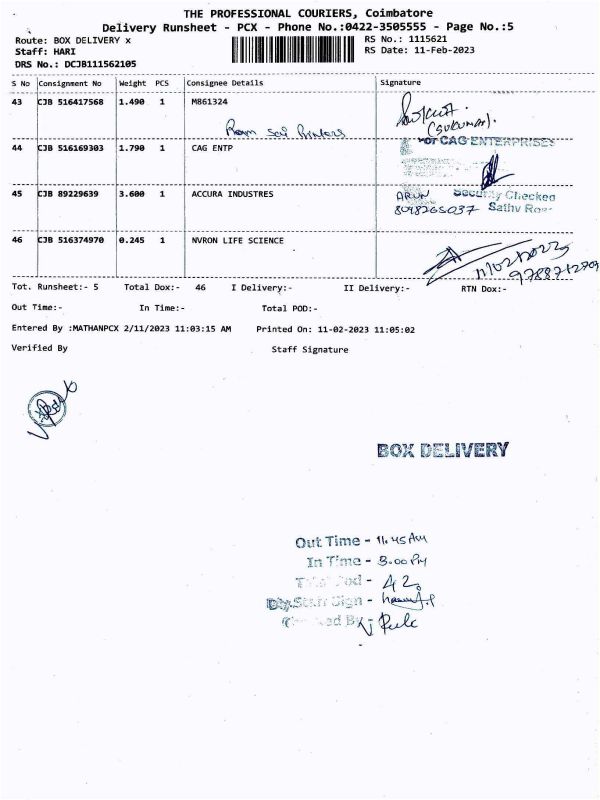 THE PROFESSIONAL COURIERS, Coimbatore
Delivery Runsheet - PCX - Phone No.:0422-3505555 - Page No.:5
Route: BOX DELIVERY x RS No.: 1115621
Staff: HARI RS Date: 11-Feb-2023
DRS No.: DCJB111562105
S No Consignment No Weight PCS Consignee Details Signature
43 CJB 516417568 1.490 1 M861324
Ram Sai Printers (SUKUMAR).
44 CJB 516169303 1.790 1 CAG ENTP For CAG ENTERPRISES
45 CJB 89229639 3.600 1 ACCURA INDUSTRES ARUN Security Checked
8098265037 Sathy Road
46 CJB 516374970 0.245 1 NVRON LIFE SCIENCE
11/02/2023
Tot. Runsheet:- 5 Total Dox:- 46 I Delivery:- II Delivery:- RTN Dox:-
Out Time:- In Time:- Total POD:-
Entered By :MATHANPCX 2/11/2023 11:03:15 AM Printed On: 11-02-2023 11:05:02
Verified By Staff Signature
BOX DELIVERY
Out Time - 11.45 AM
In Time - 3.00 PM
Total Pod - 42
Dly.Staff Sign -
Checked By -